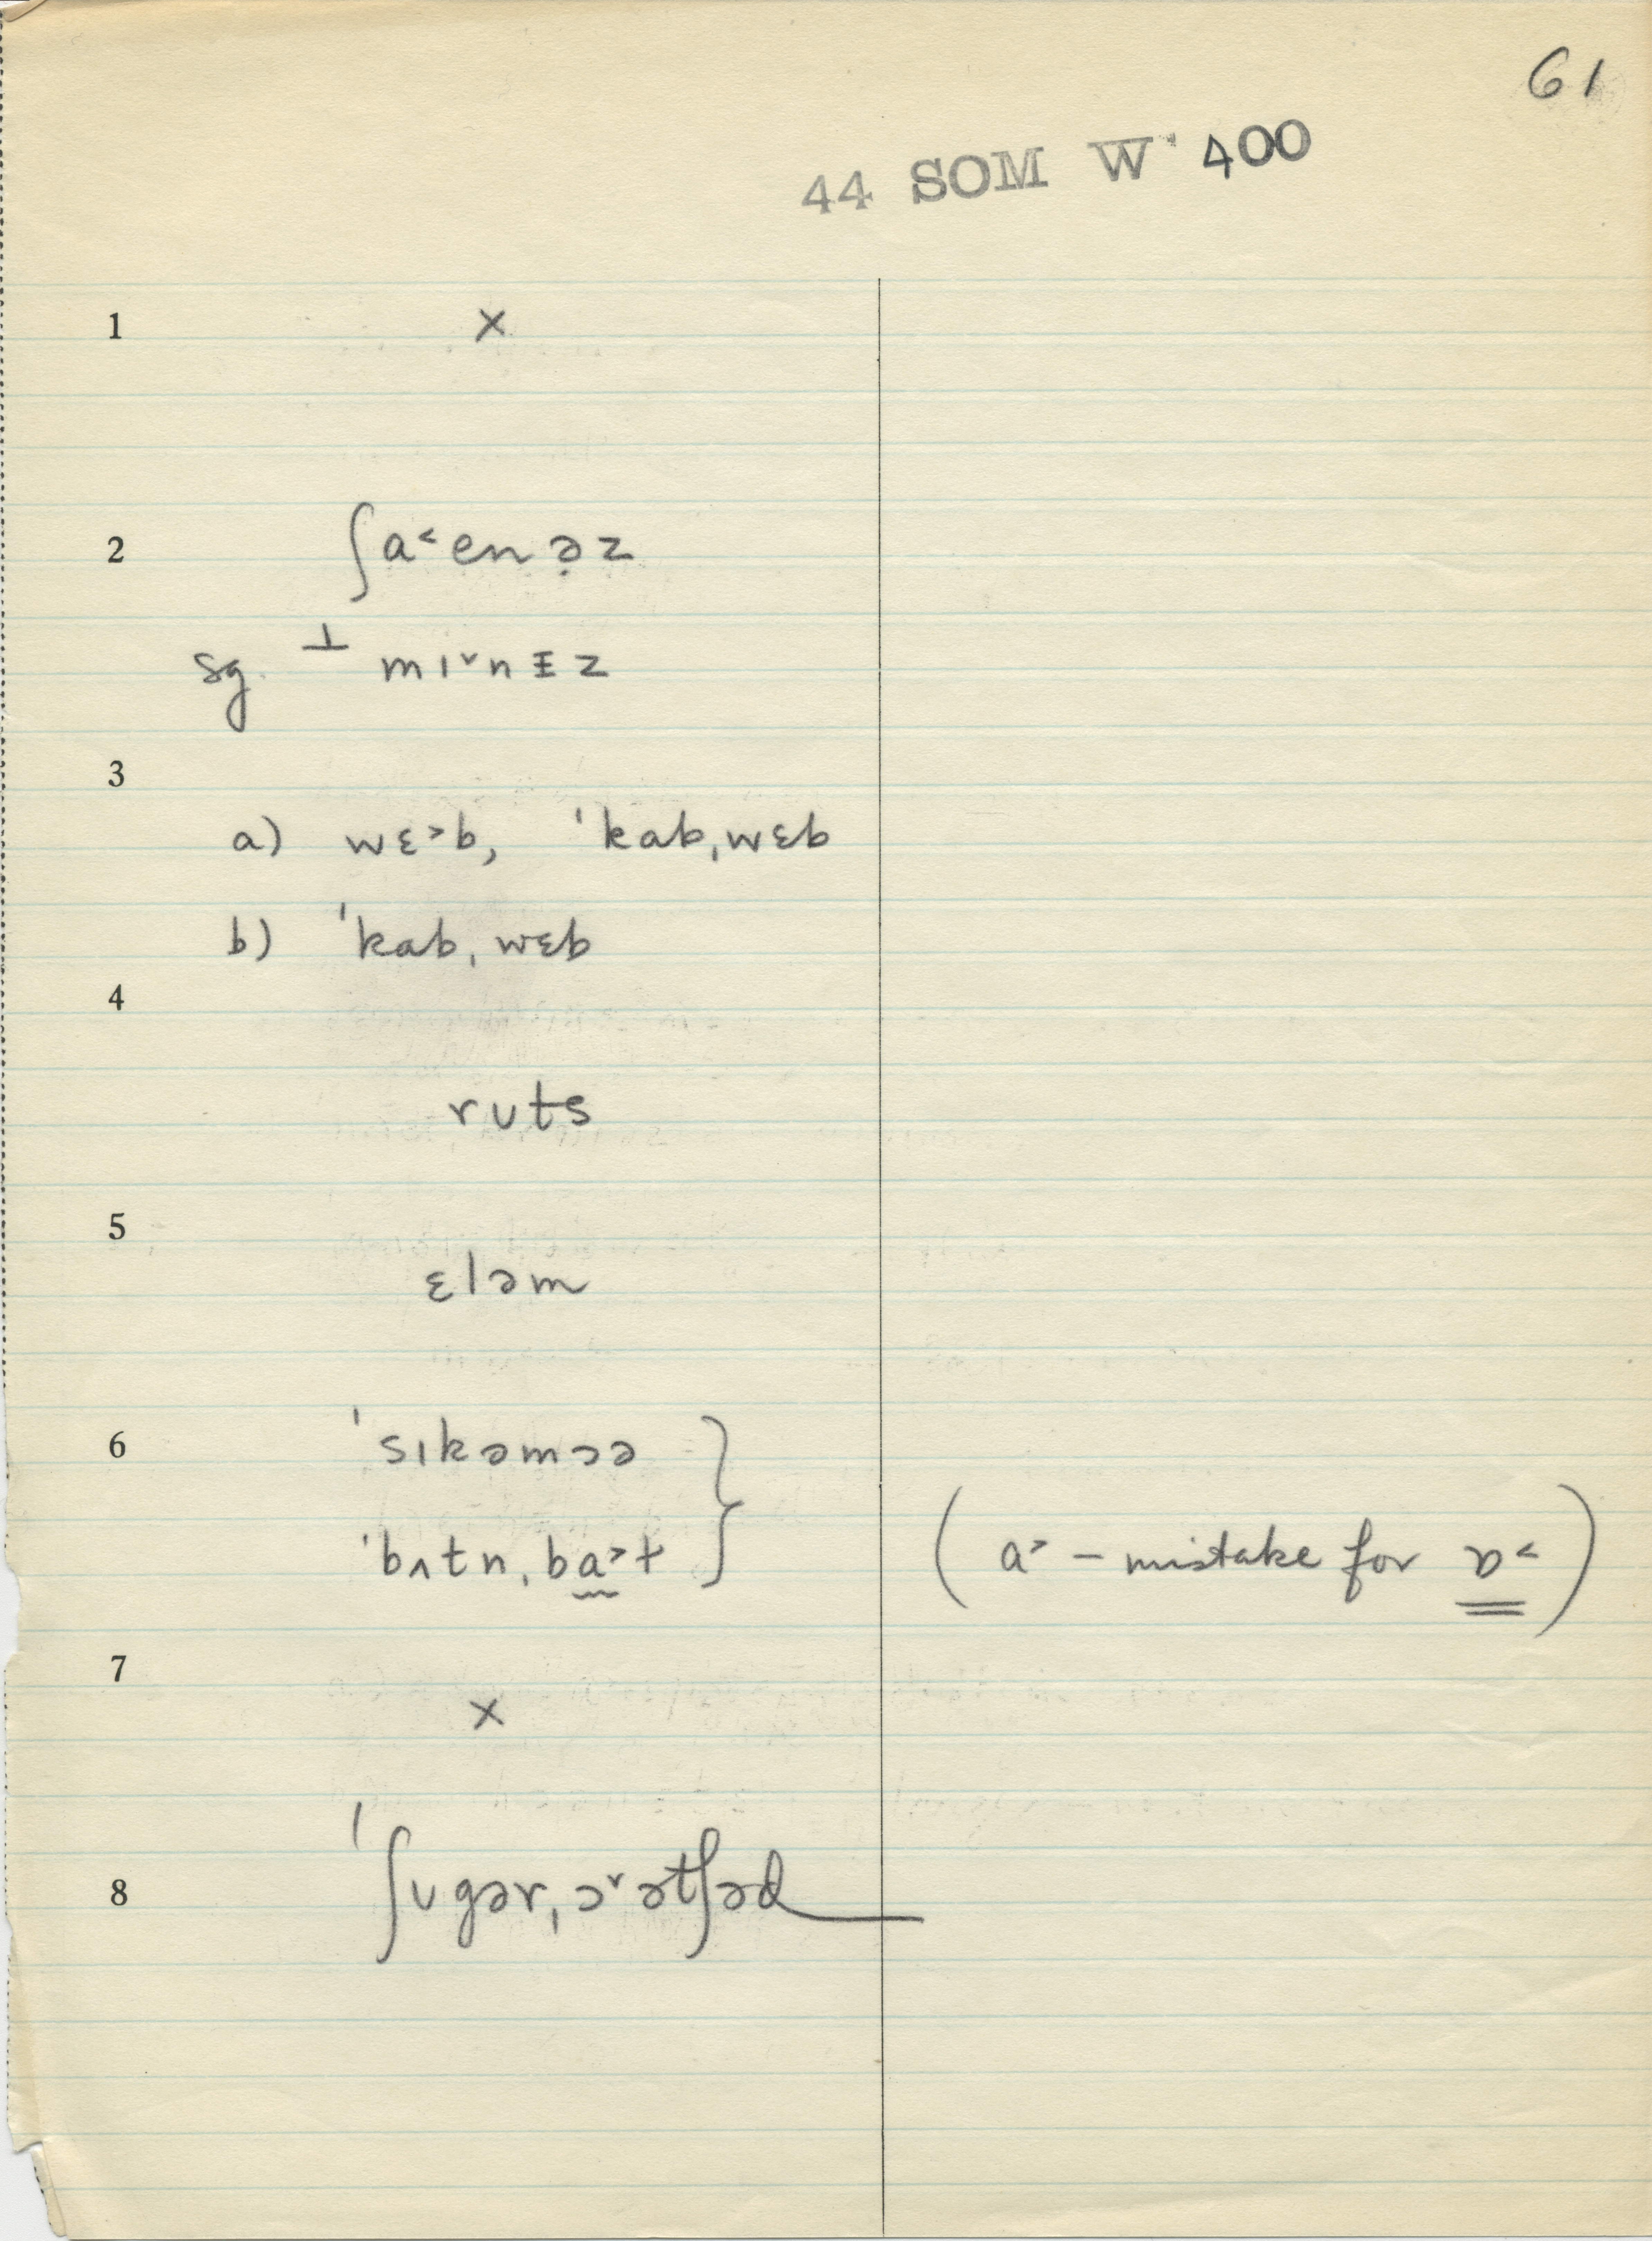 61
44 SOM W 400
1 ×
2 ʃa˂enə̣z
sg. ⊥ mɪ˅nɪ̵z
3
a) wɛ˃b, ˈkabˌwɛb
b) ˈkabˌwɛb
4
rᴜts
5
ɛləm
6 ˈsɪkəmɔə
ˈbʌtnˌba˃t } (a˃ – mistake for ɒ˂)
7
×
8 ˈʃᴜgərˌɔ˅ətʃəd